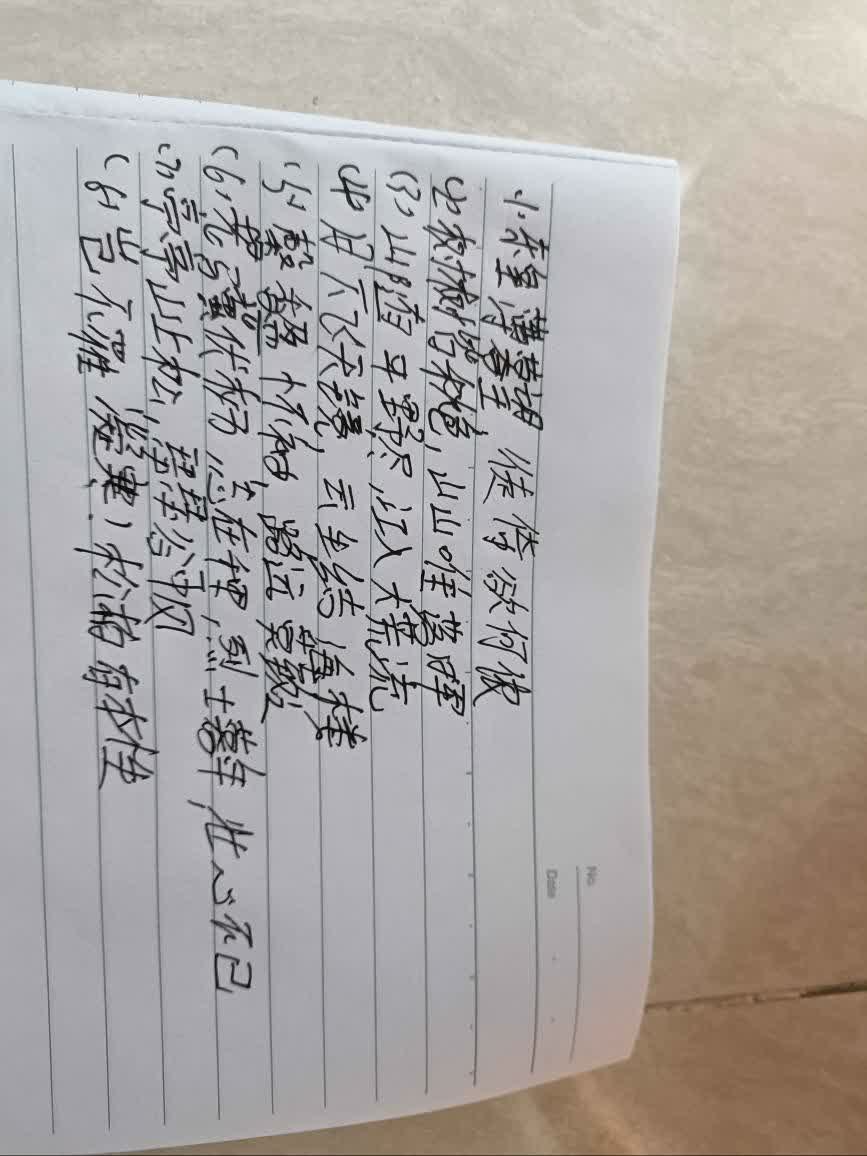 No.
Date
(1)东皋薄暮望 徙倚欲何依
(2)树树皆秋色,山山唯落晖
(3)山随平野尽,江入大荒流
(4)月下飞天镜,云生结海楼
(6)老骥伏枥,志在千里,烈士暮年,壮心不已
(7)亭亭山上松,瑟瑟谷中风
(8)岂不罹凝寒!松柏有本性